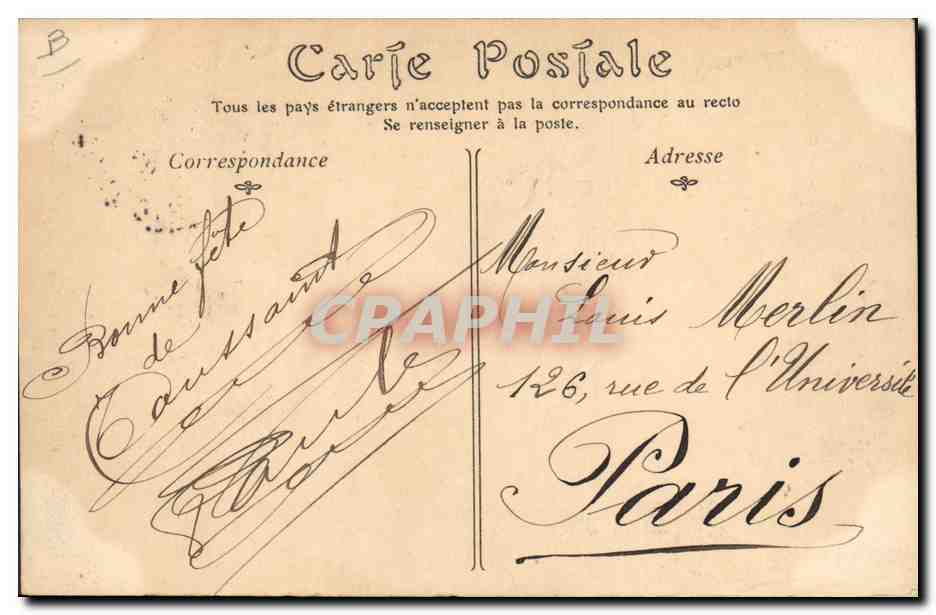 B
Carte Postale
Tous les pays étrangers n'acceptent pas la correspondance au recto
Se renseigner à la poste.
Correspondance
Bonne fête
de
Toussaint
Adresse
Monsieur
Louis Merlin
126, rue de l'Université
Paris
CRAPHIL